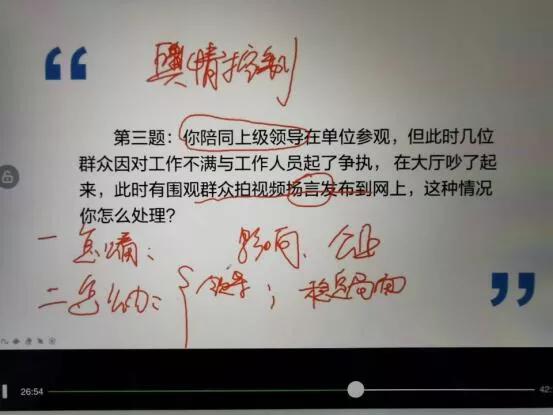 舆情控制
第三题：你陪同上级领导在单位参观，但此时几位
群众因对工作不满与工作人员起了争执，在大厅吵了起
来，此时有围观群众拍视频扬言发布到网上，这种情况
你怎么处理？
一
二怎么办：
领导；稳定局面
26:54
42: